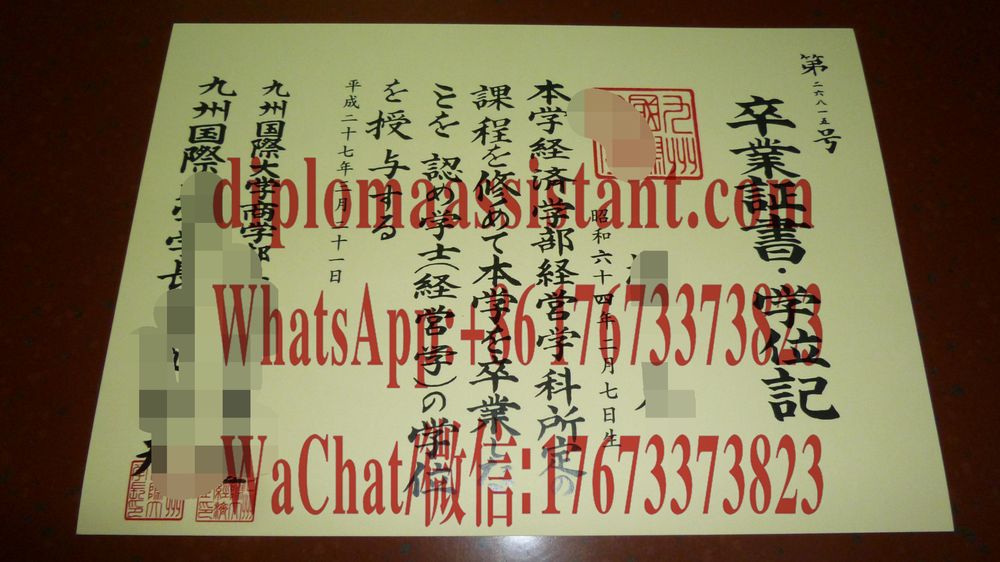 第二六八一五号
卒業証書・学位記
昭和六十四年二月七日生
本学経済学部経営学科所定の
課程を修めて本学を卒業した
ことを認め学士(経営学)の学位
を授与する
平成二十七年二月二十一日
九州国際大学商学部
九州国際 学長
diplomaassistant.com
WhatsApp:+86 17673373823
WaChat/微信:17673373823